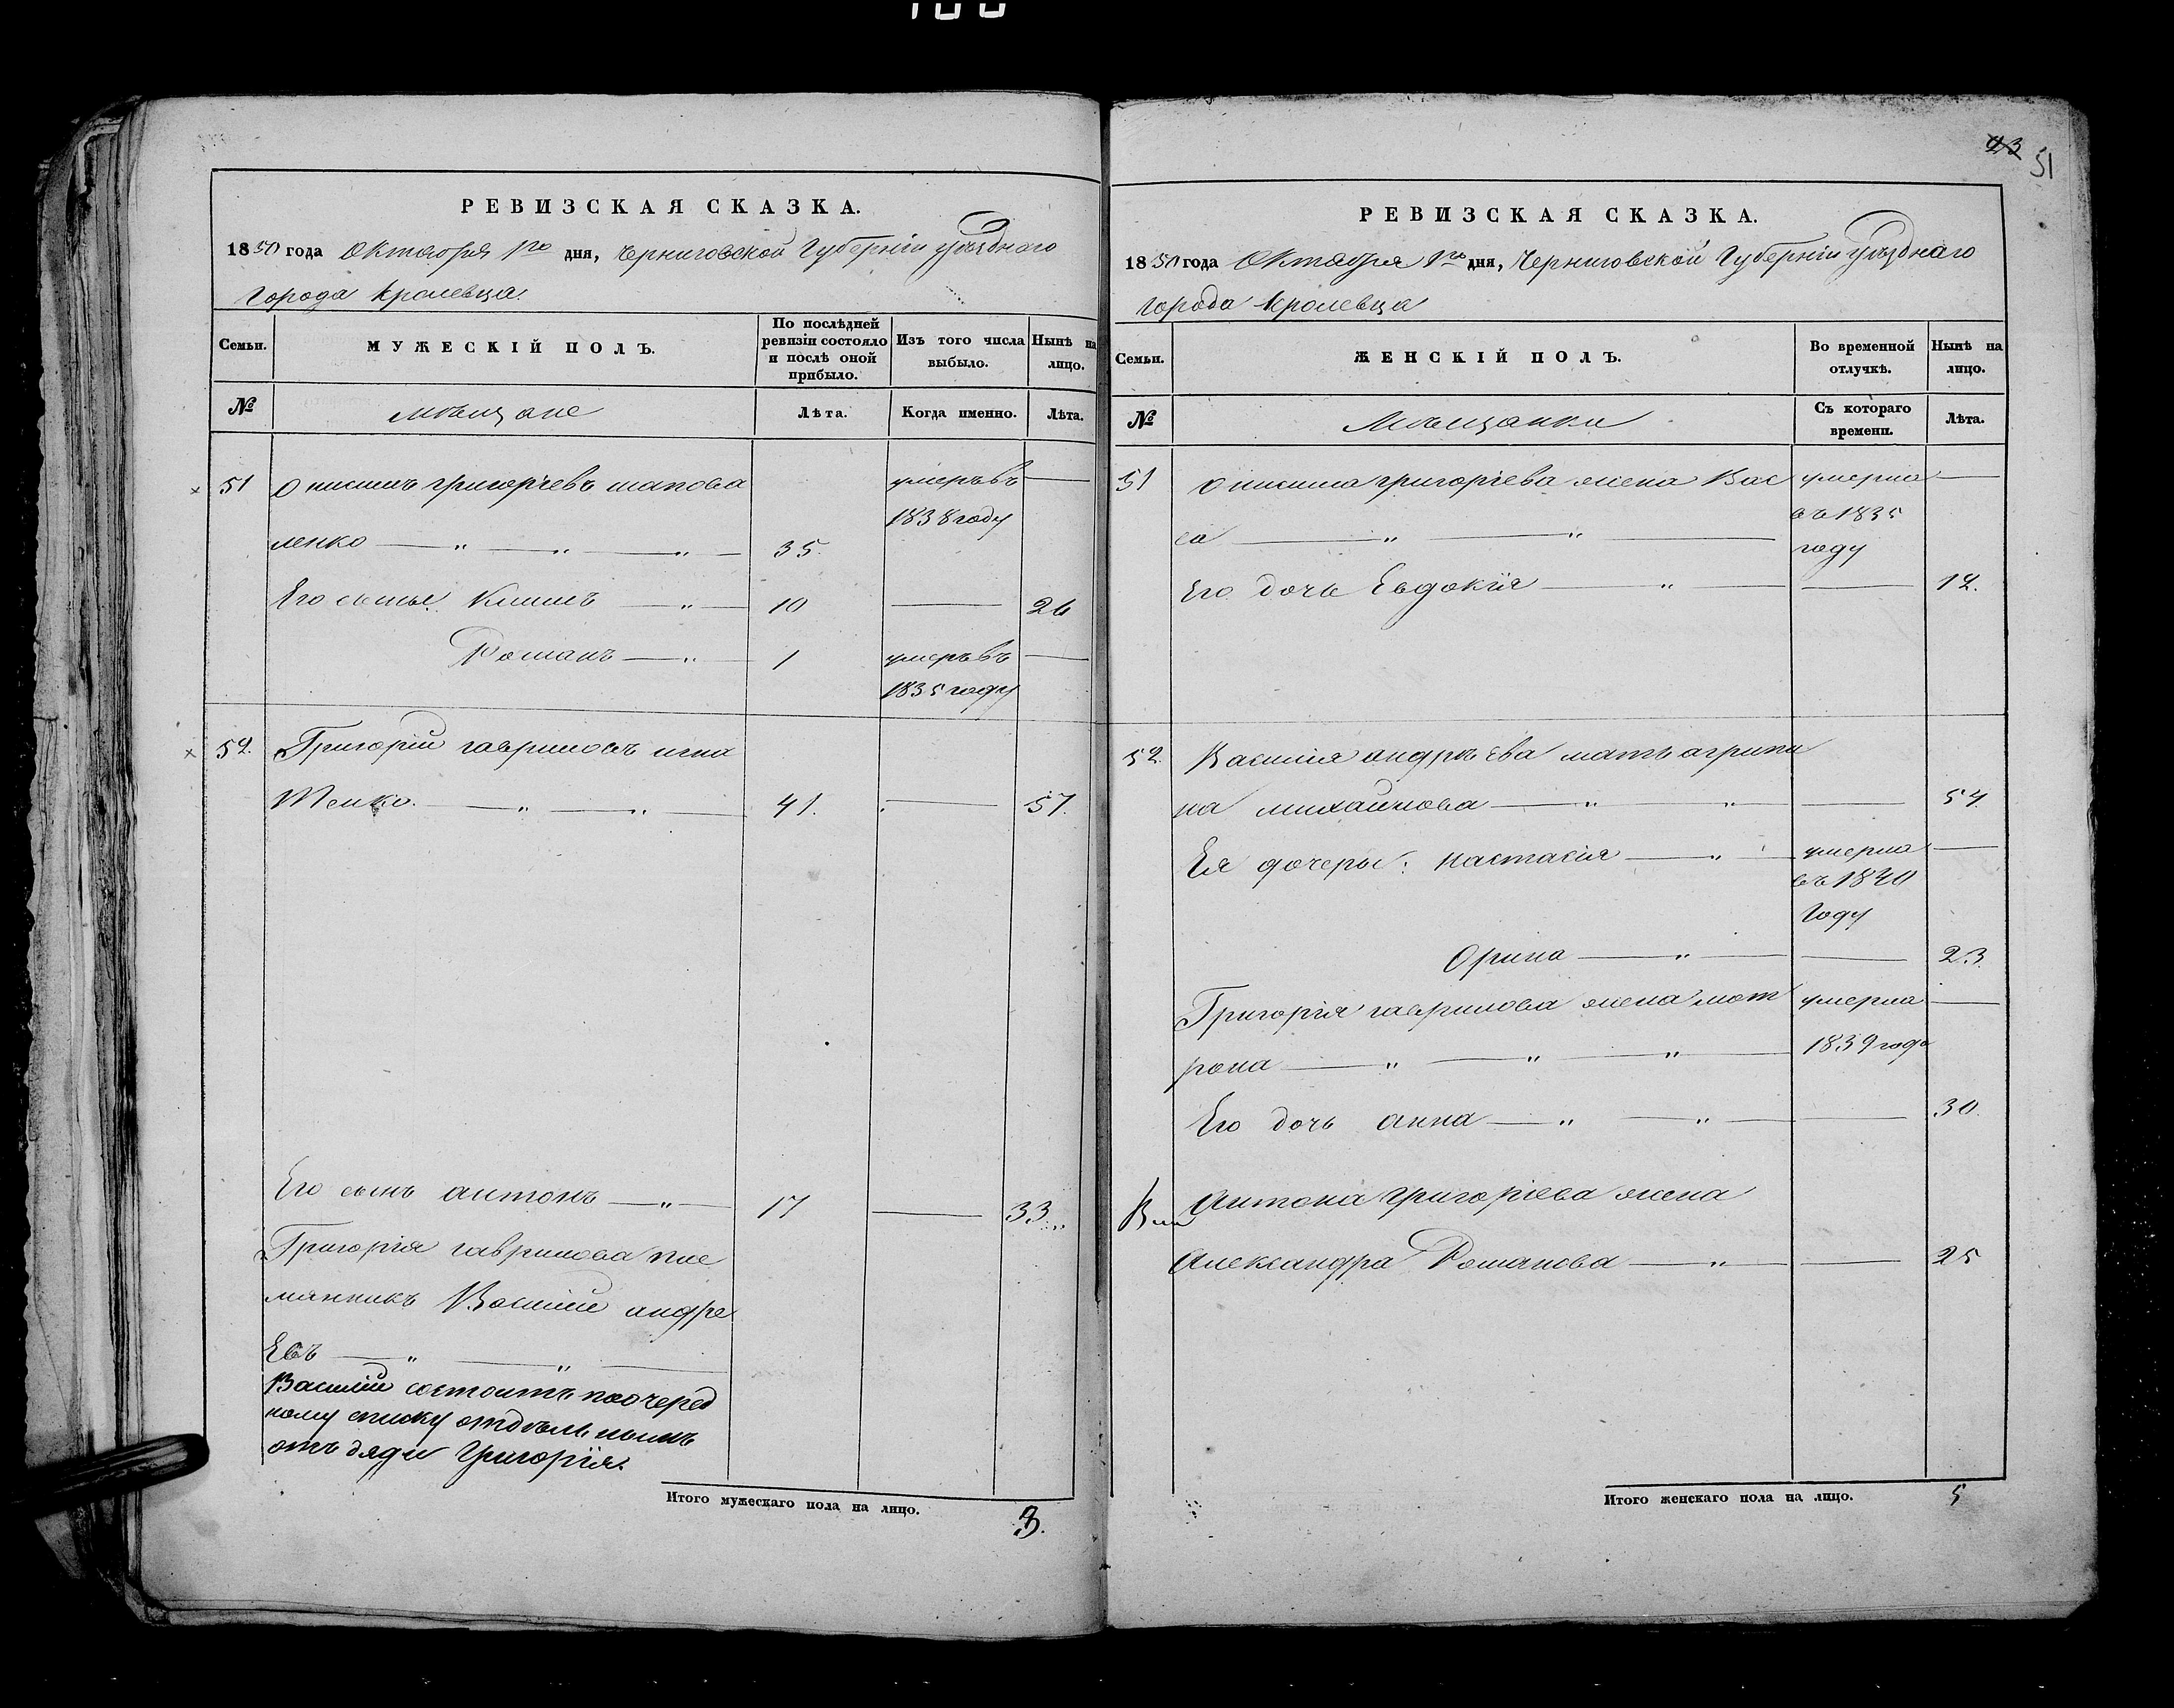 РЕВИЗСКАЯ СКАЗКА.
1850 года Октября 1го дня, Черниговской Губерніи уѣзднаго
города Кролевца.
Семьи.
МУЖЕСКІЙ ПОЛЪ.
По послѣдней
ревизіи состояло
и послѣ оной
прибыло.
Изъ того числа
выбыло.
Нынѣ на
лицо.
№
мѣщане
Лѣта.
Когда именно.
Лѣта.
51 Онисимъ григорьевъ шапова умеръ въ —
1838 году
ленко — „ — „ — „ — 35.
Его сынья: Климъ — „ — 10 — 26
Романъ — „ — 1 умеръ въ —
1835 году
52. Григорій гавриловъ игна
тенко. — „ — „ — 41. — 57.
Его сынъ антонъ — „ — 17 — 33
Григорія гаврилова пле
мянникъ Василій андре
Евъ — „ — „ —
Василій состоитъ по очеред
ному списку отдѣльнымъ
отъ дяди Григорія.
Итого мужескаго пола на лицо. 3.
43 51
РЕВИЗСКАЯ СКАЗКА.
1850 года Октября 1го дня, Черниговской Губерніи уѣзднаго
города Кролевца
Семьи.
ЖЕНСКІЙ ПОЛЪ.
Во временной
отлучкѣ.
Нынѣ на
лицо.
№
Мѣщанки
Съ котораго
времени.
Лѣта.
51 Онисима григоріева жена Вас умерла —
са — „ — „ — въ 1835
году
Его дочь Евдокія — „ — — 12.
52. Василія андрѣева мать агрипи
на михайлова — „ — „ — 54.
Ея дочеры: настасія — „ — умерла —
въ 1840
году
Орина — „ — — 23.
Григорія гаврилова жена мот умерла —
рона — „ — „ — „ — 1839 года
Его дочь анна — „ — „ — 30.
Антона григоріева жена
Александра Романова — „ — — 25
Итого женскаго пола на лицо. 5